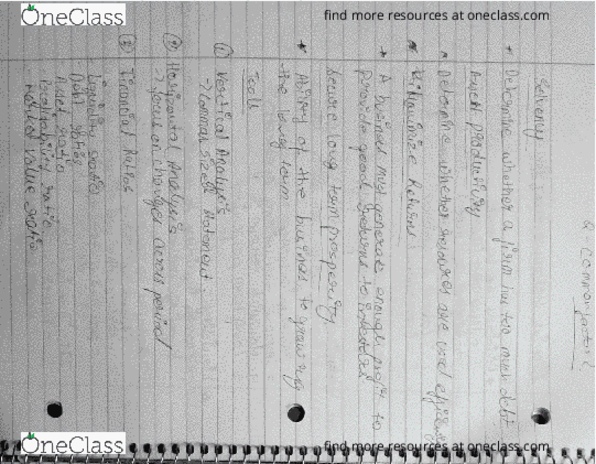 OneClass
find more resources at oneclass.com
2 common factors
Solvency
* Determine whether a firm has too much debt
Asset productivity
* Determine whether resources are used
Maximize Returns
* A business must generate enough profit to
provide good returns to investors
Secure long term prosperity
* Ability of the business to grow
the long term
Tools
① Vertical Analysis
→ common sized statement
② Horizontal Analysis
→ focus on changes across period
③ Financial Ratios
Liquidity ratio
- Debt ratios
Asset ratio
Profitability ratio
Market value ratio
OneClass
find more resources at oneclass.com